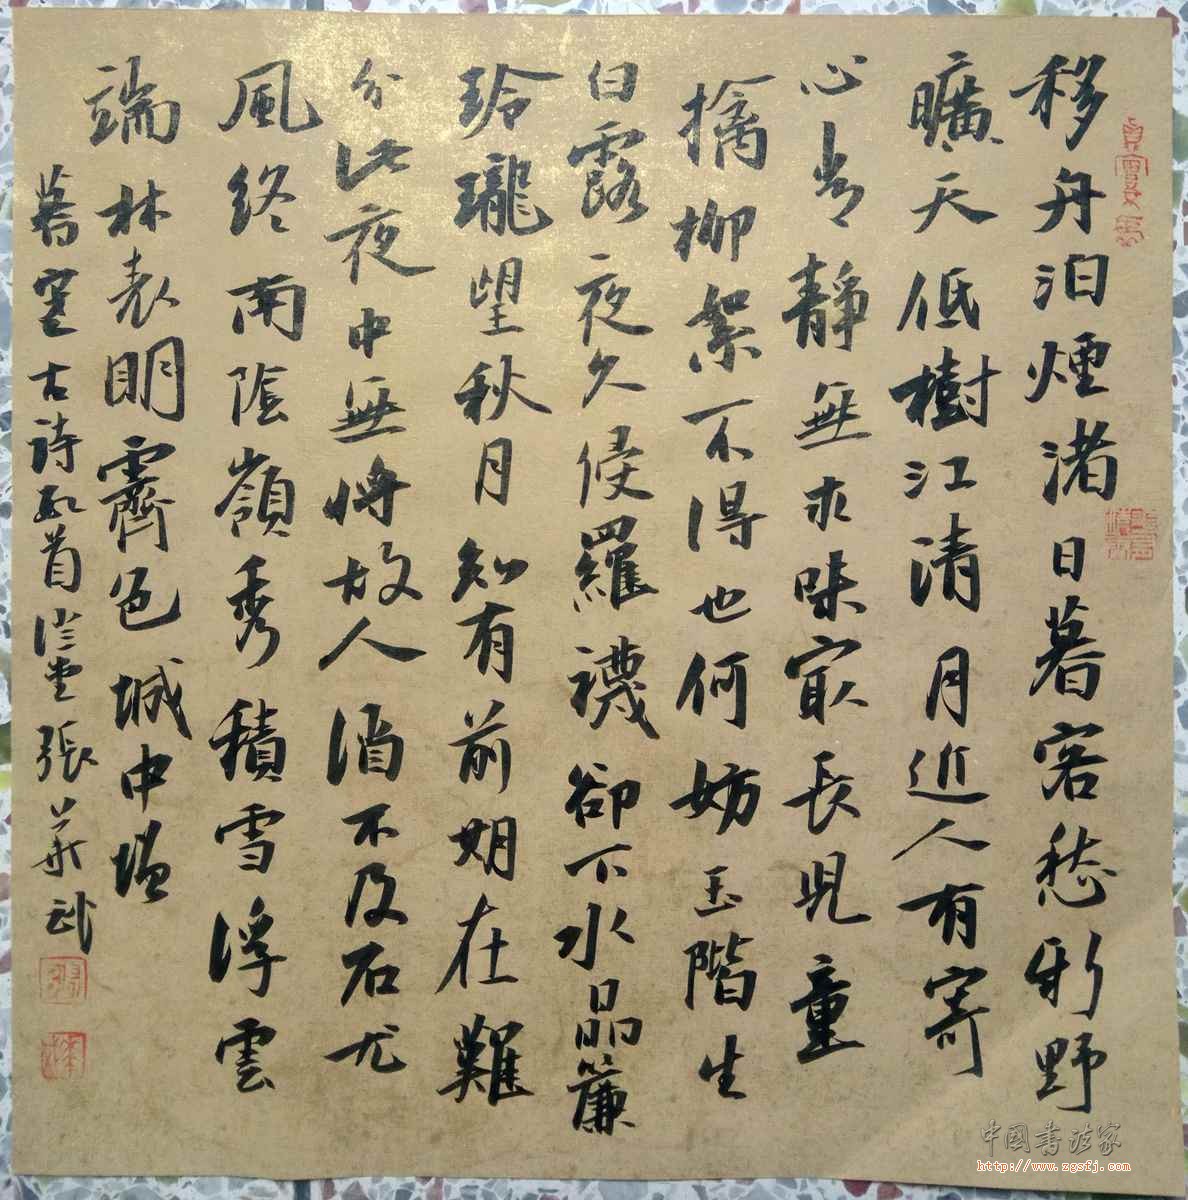 移舟泊煙渚日暮客愁新野
曠天低樹江清月近人有寄
心常靜無求味最長兒童
擒柳絮不得也何妨玉階生
白露夜久侵羅襪卻下水晶簾
玲瓏望秋月知有前期在難
分此夜中無將故人酒不及石尤
風終南陰嶺秀積雪浮雲
端林表明霽色城中增
暮寒古詩首堂張華武
中國書法家
http://www.zgsfj.com